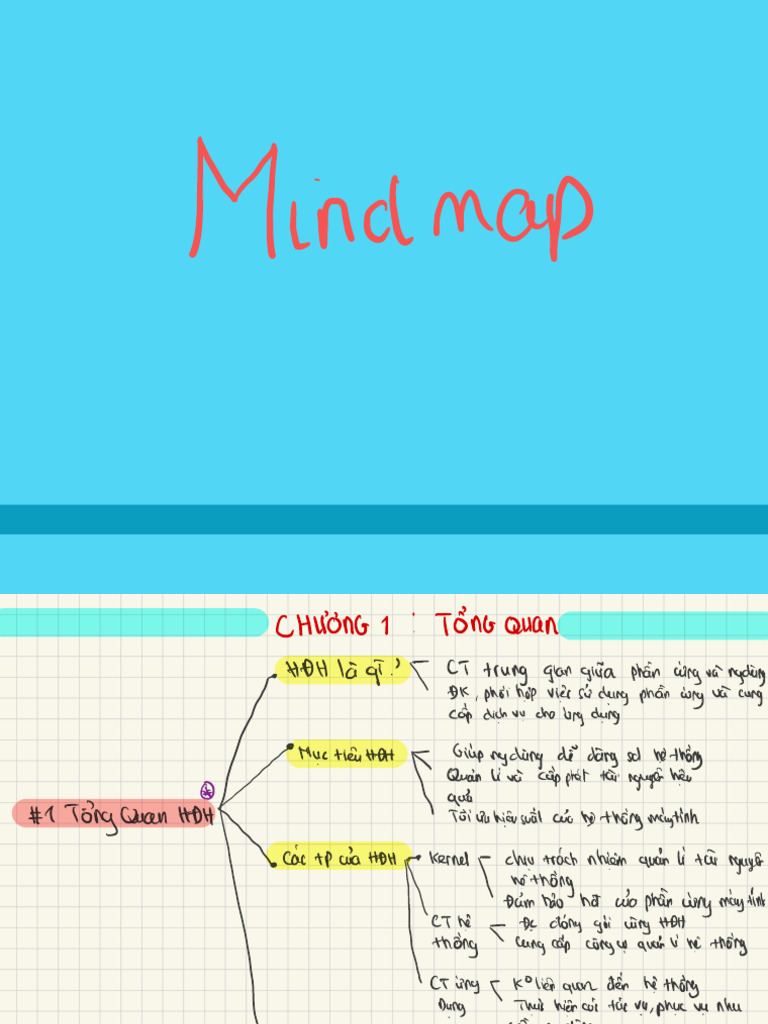 Mind map
CHƯƠNG 1 : TỔNG QUAN
HĐH là gì?
CT trung gian giữa phần cứng và ng dùng
ĐK, phối hợp việc sử dụng phần cứng và cung
cấp dịch vụ cho ứng dụng
Mục tiêu HĐH
Giúp ng dùng dễ dàng sd hệ thống
Quản lí và cấp phát tài nguyên hiệu
quả
Tối ưu hiệu suất của hệ thống máy tính
#1 Tổng Quan HĐH
Các tp của HĐH
Kernel
chịu trách nhiệm quản lí tài nguyên
hệ thống
Đảm bảo hđ của phần cứng máy tính
CT hệ
thống
Đc đóng gói cùng HĐH
Cung cấp công cụ quản lí hệ thống
CT ứng
Dụng
K° liên quan đến hệ thống
Thực hiện các tác vụ, phục vụ nhu